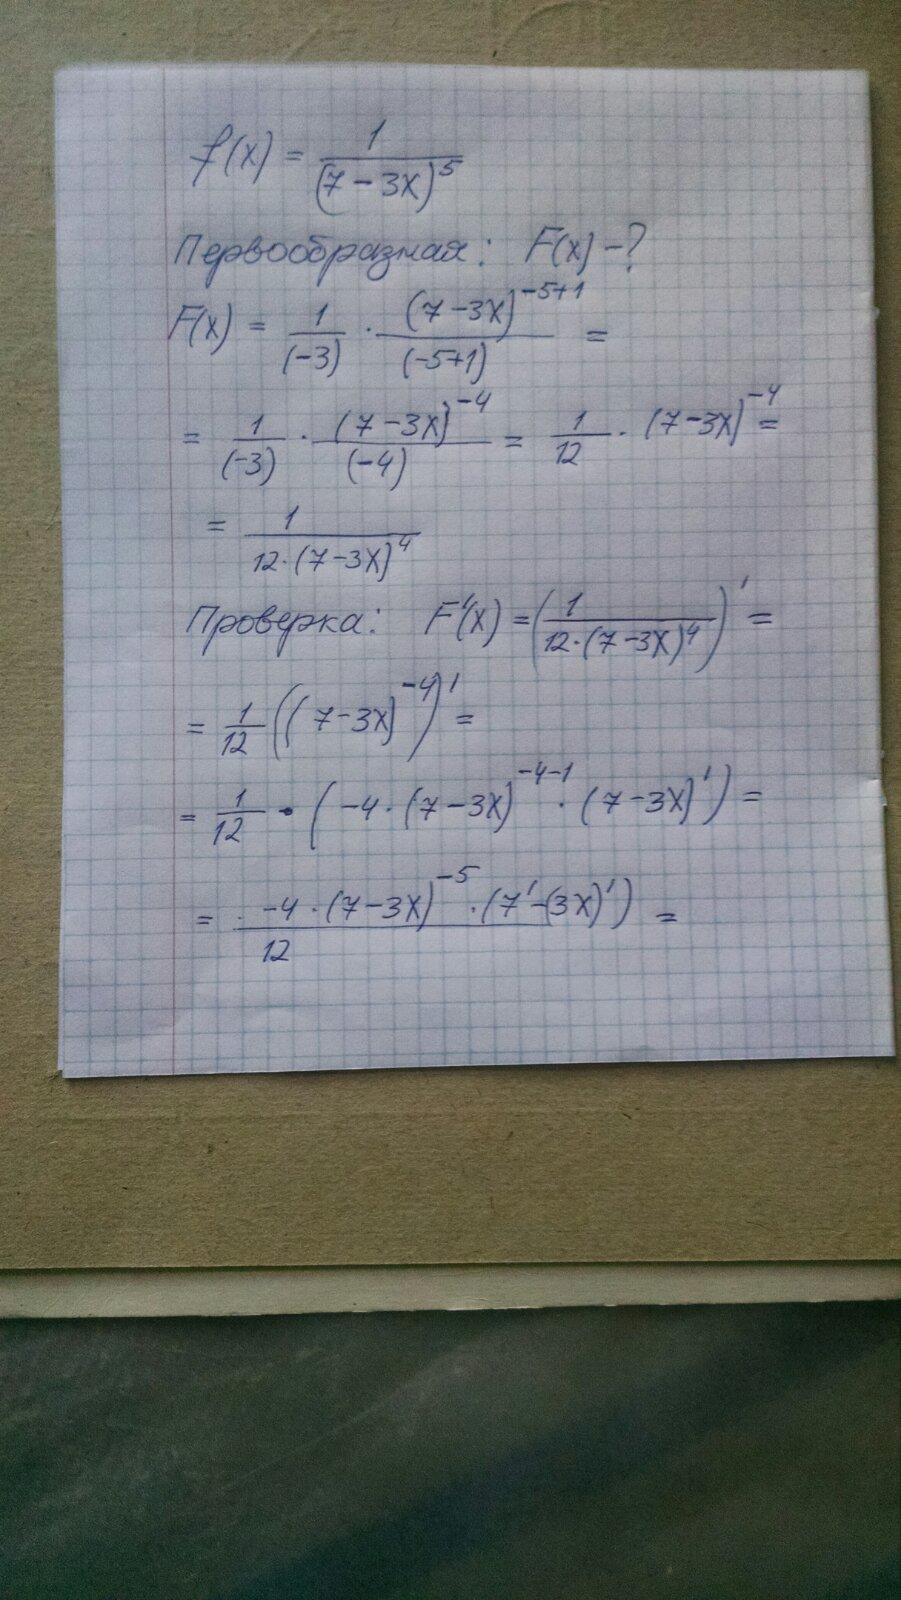 f(x) = 1/(7-3x)^5
Первообразная: F(x)-?
F(x) = 1/(-3) · (7-3x)^(-5+1)/(-5+1) =
= 1/(-3) · (7-3x)^(-4)/(-4) = 1/12 · (7-3x)^(-4) =
= 1/(12·(7-3x)^4)
Проверка: F'(x) = (1/(12·(7-3x)^4))' =
= 1/12 ((7-3x)^(-4))' =
= 1/12 · (-4·(7-3x)^(-4-1) · (7-3x)') =
= -4·(7-3x)^(-5) · (7'-(3x)')/12 =